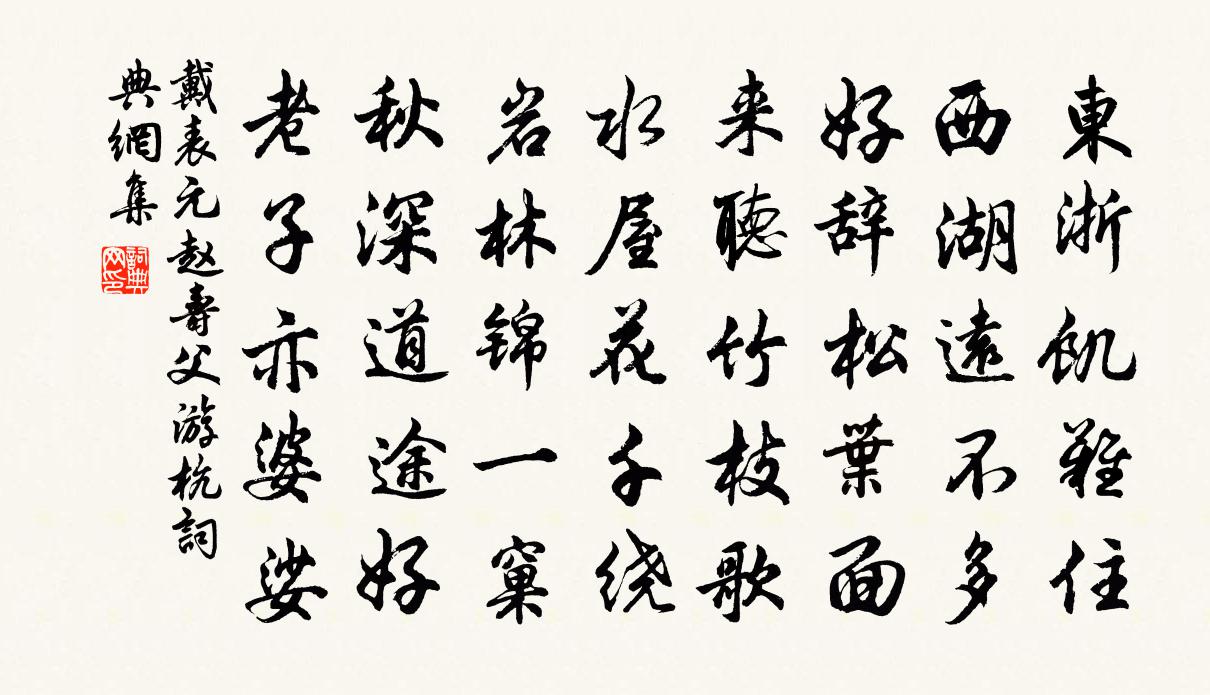 東浙飢難住
西湖遠不多
好辞松葉面
来聽竹枝歌
水屋花千绕
岩林锦一窠
秋深道途好
老子亦婆娑
戴表元赵壽父游杭詞
典網集
詞典
网印